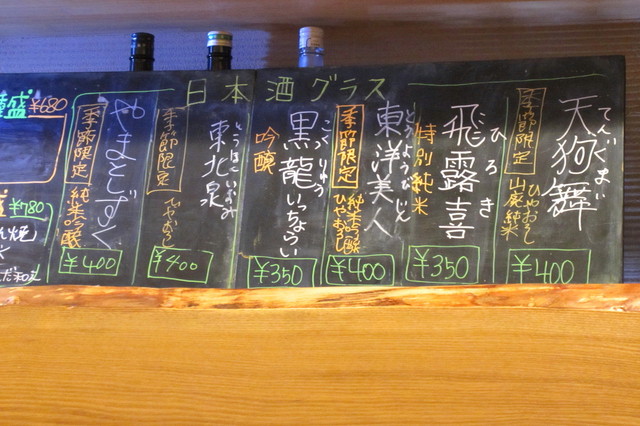 日本酒グラス
天狗舞
てんぐまい
季節限定
ひやおろし
山廃純米
¥400
飛露喜
ひろき
特別純米
¥350
東洋美人
とうようびじん
季節限定
純米吟醸
ひやおろし
¥400
黒龍いっちょらい
こくりゅう
吟醸
¥350
東北泉
とうほくいずみ
季節限定
ひやおろし
¥400
やまとしずく
季節限定
純米吟醸
¥400
盛 ¥680
¥780